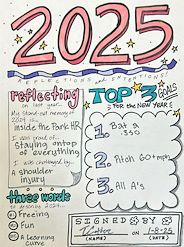 2025
REFLECTIONS and INTENTIONS!
reflecting
on last year...
My stand-out memory of 2024 is...
inside the Park HR
I was proud of...
staying on top
of everything
I was challenged by...
a shoulder
injury
three words
to describe 2024...
#1 Freeing
#2 Fun
#3 A learning
curve
TOP 3 GOALS
FOR the NEW YEAR
1. Bat a
350
2. Pitch 60+mph
3. All A's
SIGNED BY
on 1-8-25
(NAME) (DATE)